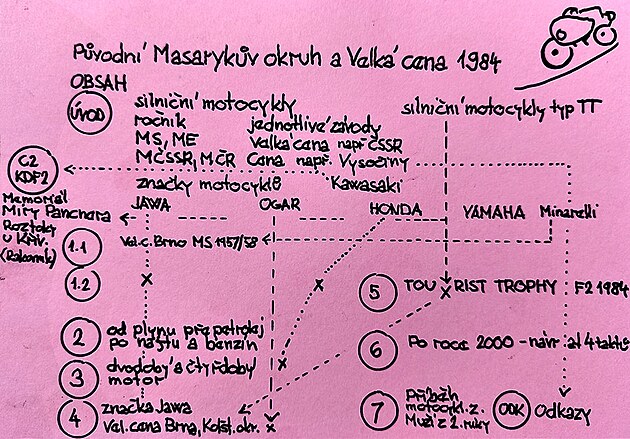 Původní Masarykův okruh a Velká cena 1984
OBSAH
ÚVOD
silniční motocykly
ročník
MS, ME
MČSSR, MČR
jednotlivé závody
Velká cena např ČSSR
Cena např. Vysočiny
silniční motocykly typ TT
značky motocyklů
Kawasaki
C2
KDF2
Memoriál
Míry Panchera
Roztoky
u Křiv.
JAWA
OGAR
HONDA
YAMAHA
Minarelli
1.1
Vel.c. Brno MS 1957/58
1.2
5
TOU RIST TROPHY
F2 1984
2
od plynu přes petrolej
po naftu a benzin
3
dvodobý a čtyřdobý
motor
6
Po roce 2000 - návrat 4taktů
4
značka Jawa
Vel. cena Brna, okr.
7
příběh
motocykl z.
Muži z 2. ruky
ODK
Odkazy